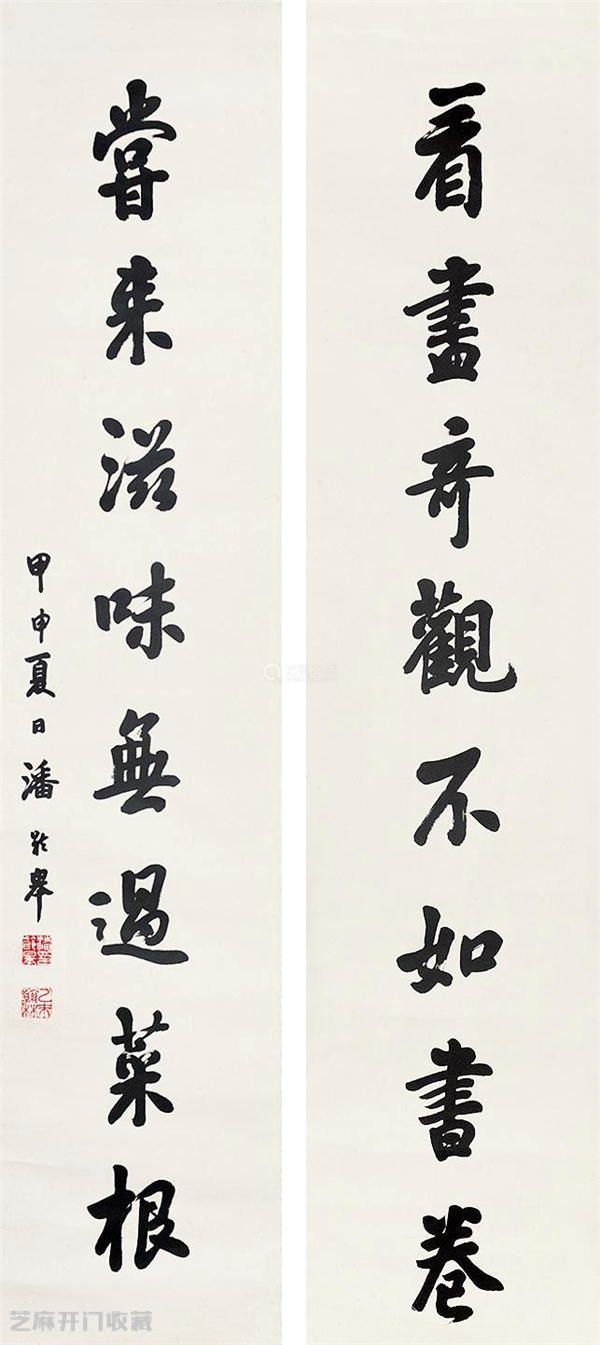 看盡奇觀不如書卷
嘗来滋味無過菜根
甲申夏日潘齡皋
芝麻开门收藏